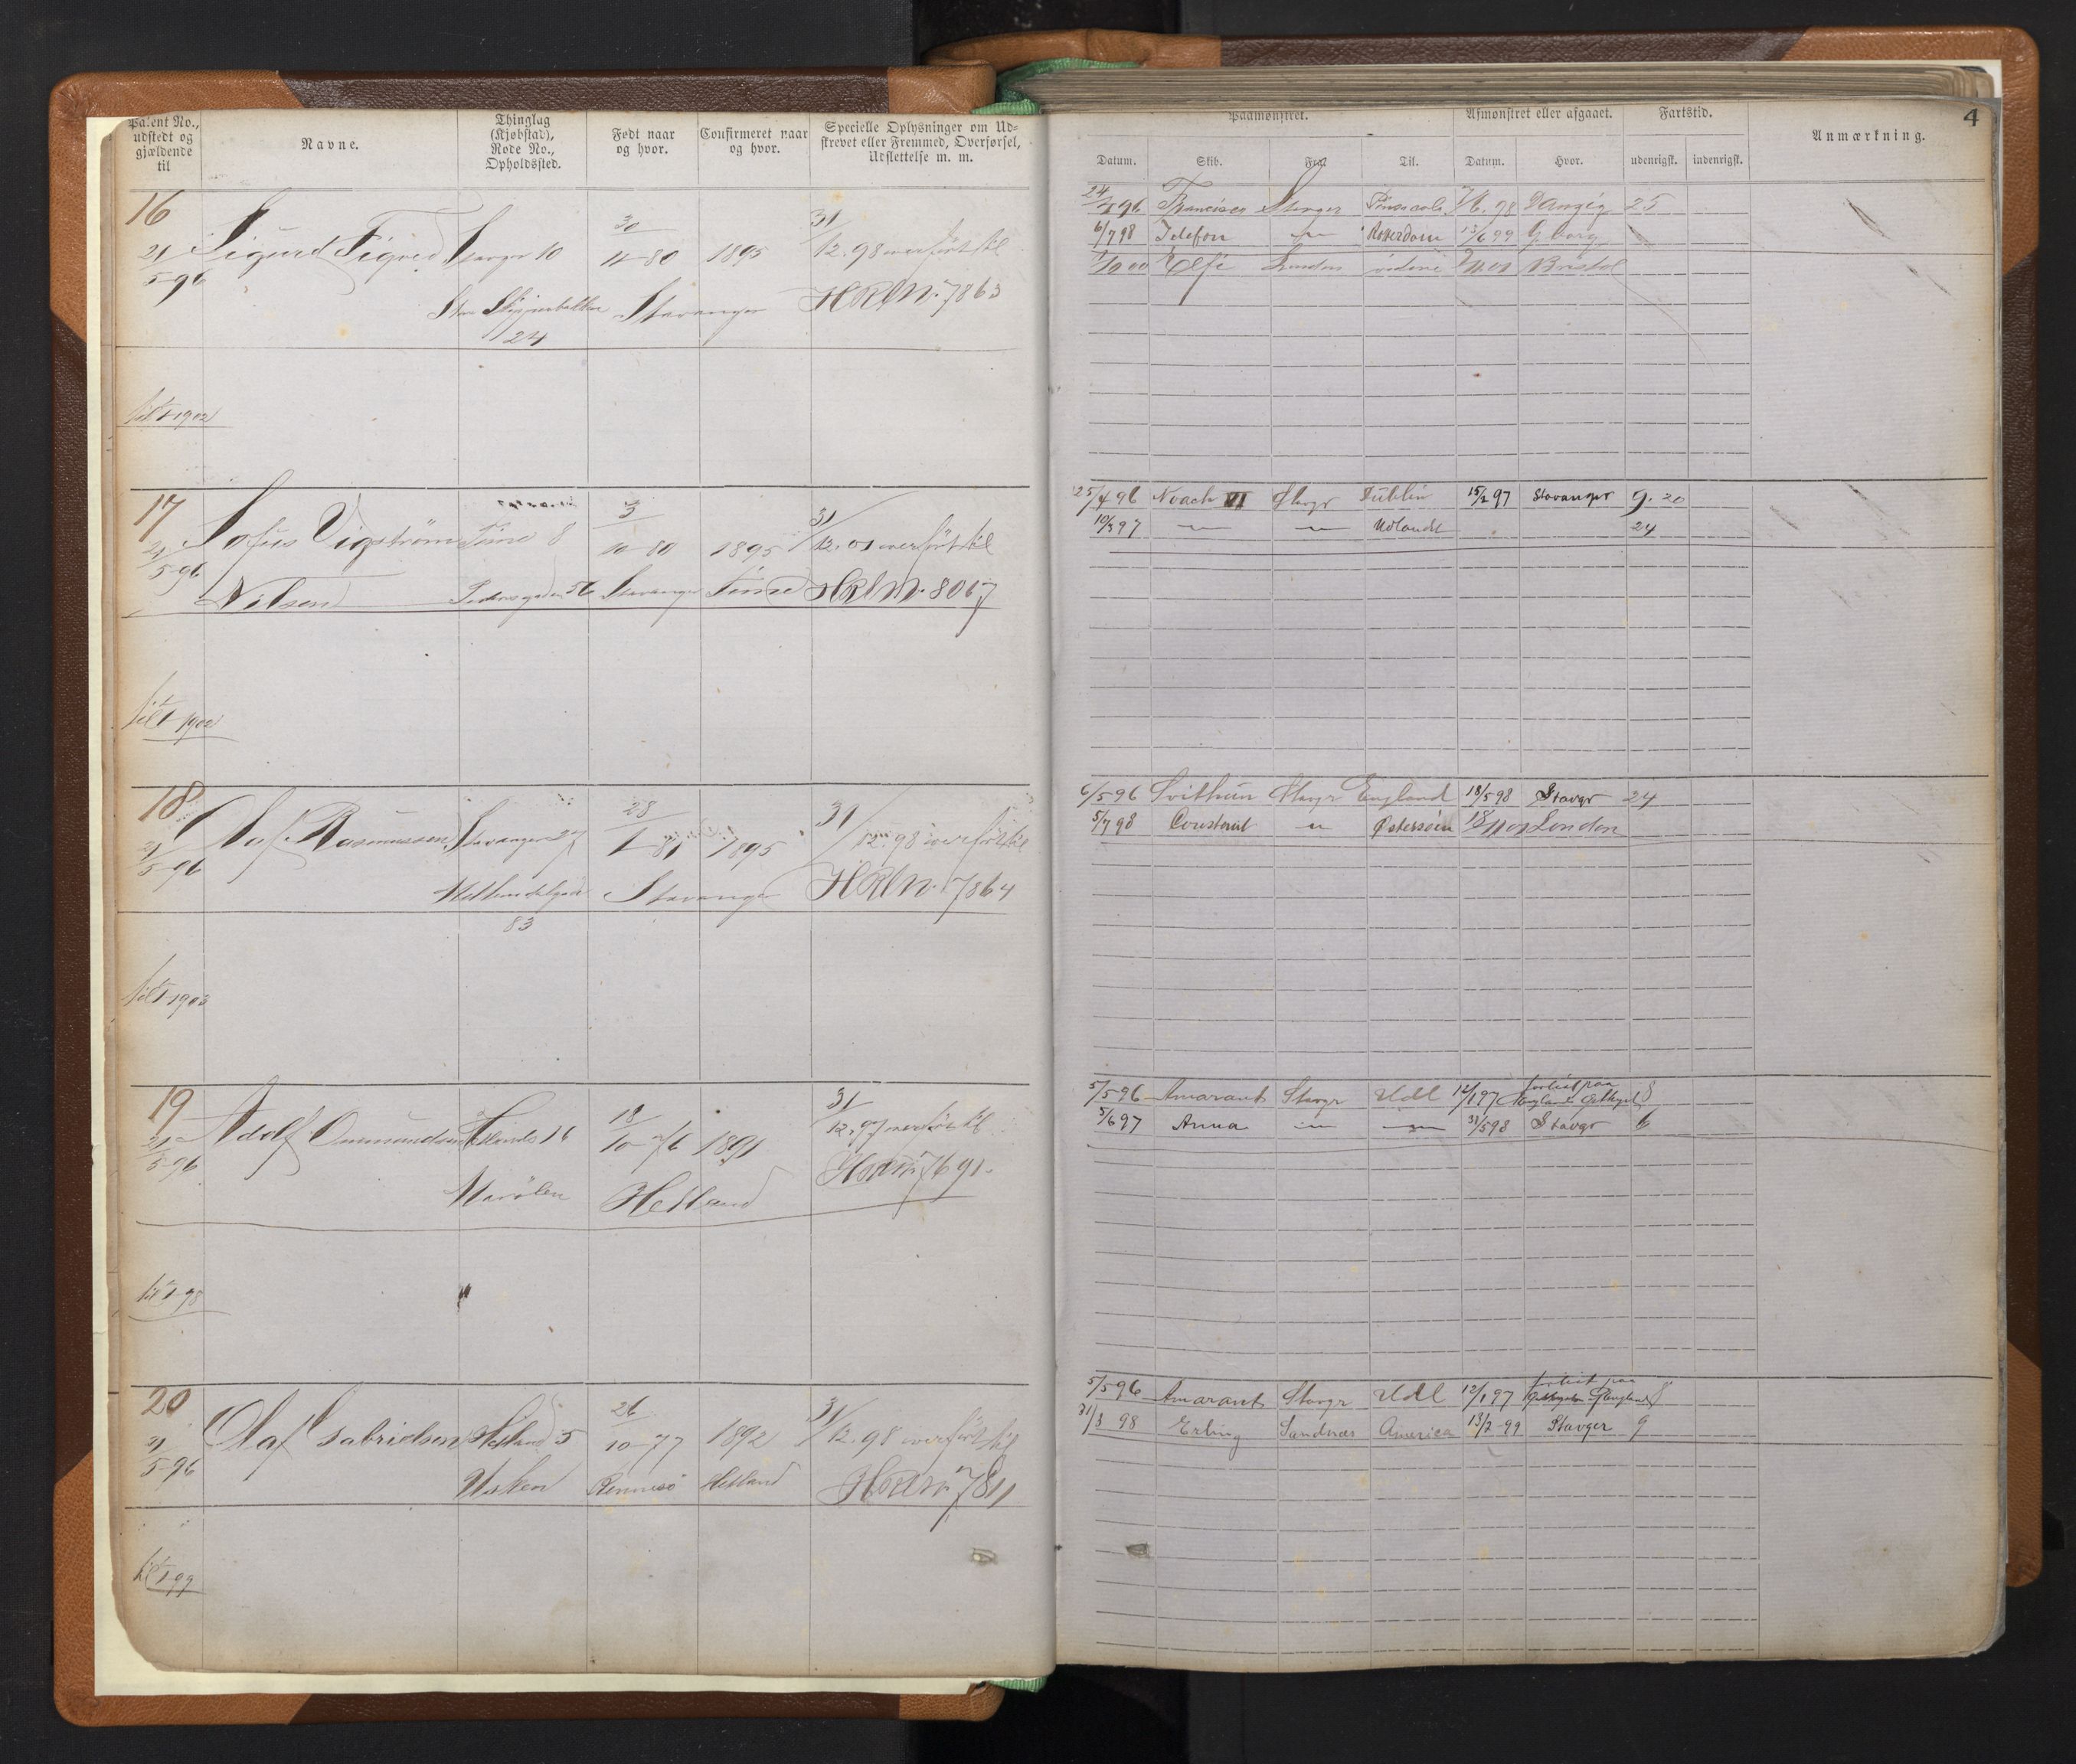 Patent No., udstedt og gjældende til
Navne.
Thinglag (Kjøbstad), Rode No., Opholdssted.
Født naar og hvor.
Confirmeret naar og hvor.
Specielle Oplysninger om Udskrevet eller Fremmed, Overførsel, Udslettelse m. m.
16
21/5-96 Sigurd Sigved Stavger 10 30/11-80 1895 31/12.98 overført til
Store Skipperbakken 24 Stavanger HRl No. 7863
til 1-1902
17
21/5-96 Sofus Vigstrøm Time 8 3/10-80 1895 31/12.01 overført til
Nilsen Pedersgaden 56 Stavanger Time HRl No. 8067
til 1-1902
18
21/5-96 Olaf Rasmussen Stavanger 27 28/1-81 1895 31/12.98 overført til
83 Stavanger HRl No. 7864
til 1-1903
19
21/5-96 Adolf Ommundsen Hetland 16 18/10-76 1891 31/12.97 overført til
Hetland 7691
til 1-98
20
21/5-96 Olaf Gabrielsen Hetland 5 26/10-77 1892 31/12.98 overført til
Usken Rennesø Hetland 7811
til 1-99
4
Paamønstret.
Afmønstret eller afgaaet.
Fartstid.
Anmærkning.
Datum. Skib. Fra Til. Datum. Hvor. udenrigsk. indenrigsk.
96 Francisca Stavger Pensacola 98 Danzig 25
6/7 98 Ildefon — Rotterdam 13/6 99 G.borg
00 Elfi London 01 Bristol
25/4 96 Noach VI Stavgr Dublin 15/2 97 Stavanger 9. 20
10/3 97 — — Udlandt 24
6/5 96 Svithun Stavgr England 18/5 98 Stavgr 24
5/7 98 Constant — Østersøen 18/11 01 London
5/5 96 Amarant Stavgr Udl 12/1 97 forlist paa 8
5/6 97 Anna — — 31/5 98 Stavgr 6
5/5 96 Amarant Stavgr Udl 12/1 97 forlist paa 8
31/3 98 Erling Sandnæs America 13/2-99 Stavger 9